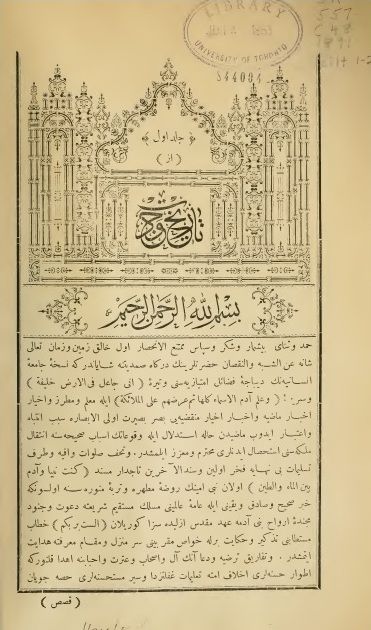 LIBRARY
UNIVERSITY OF TORONTO
844084
557
1891
﴿ جلد اول ﴾
( از )
تاريخ جودت
بسم الله الرحمن الرحيم
حمد وثنای بيشمار وشكر وسپاس ممتنع الانحصار اول خالق زمين وزمان تعالى
شانه عن الشبه والنقصان حضرتلرينك درگاه صمديتنه شاياندركه نسخهٔ جامعهٔ
انسانيه‌نك ديباجهٔ فضائل امتيازيه‌سنی وتيرهٔ ( انی جاعل فی الارض خليفة )
وسر ( وعلم آدم الاسماء كلها ثم عرضهم على الملائكة ) ايله معلم ومطرز واخبار
اخبار ماضيه واخبار اخيار منقضيه‌يی بصر بصيرت اولی الابصاره سبب انتباه
واعتبار ايدوب ماضيدن حاله استدلال ايله وقوعاتك اسباب صحيحه‌سنه انتقال
ملكه‌سنی استحصال ايدنلری محترم ومعزز ايلمشدر. وتحف صلوات وافيه وطرف
تسليمات بی نهايه فخر اولين وسند الآخرين تاجدار مسند ( كنت نبيا وآدم
بين الماء والطين ) اولان نبی امينك روضهٔ مطهره وتربهٔ منوره‌سنه اولسونكه
خبر صحيح وصادق ويقينی ايله عامهٔ عالمينی مسلك مستقيم شريعته دعوت وجنود
مجندهٔ ارواح بنی آدمه عهد مقدس ازليده سزا گوريلان ( الست بربكم ) خطاب
مستطابنی تذكير وحكايت برله خواص مقربينی سر منزل ومقام معرفته هدايت
ايتمشدر. وتفاريق ترضيه ودعا آنك آل واصحاب وعترت واحبابنه اهدا قلنوركه
اطوار حسنه‌لری اخلاف امته تعليمات وسير مستحسنه‌لری حصه جويان
( قصص )